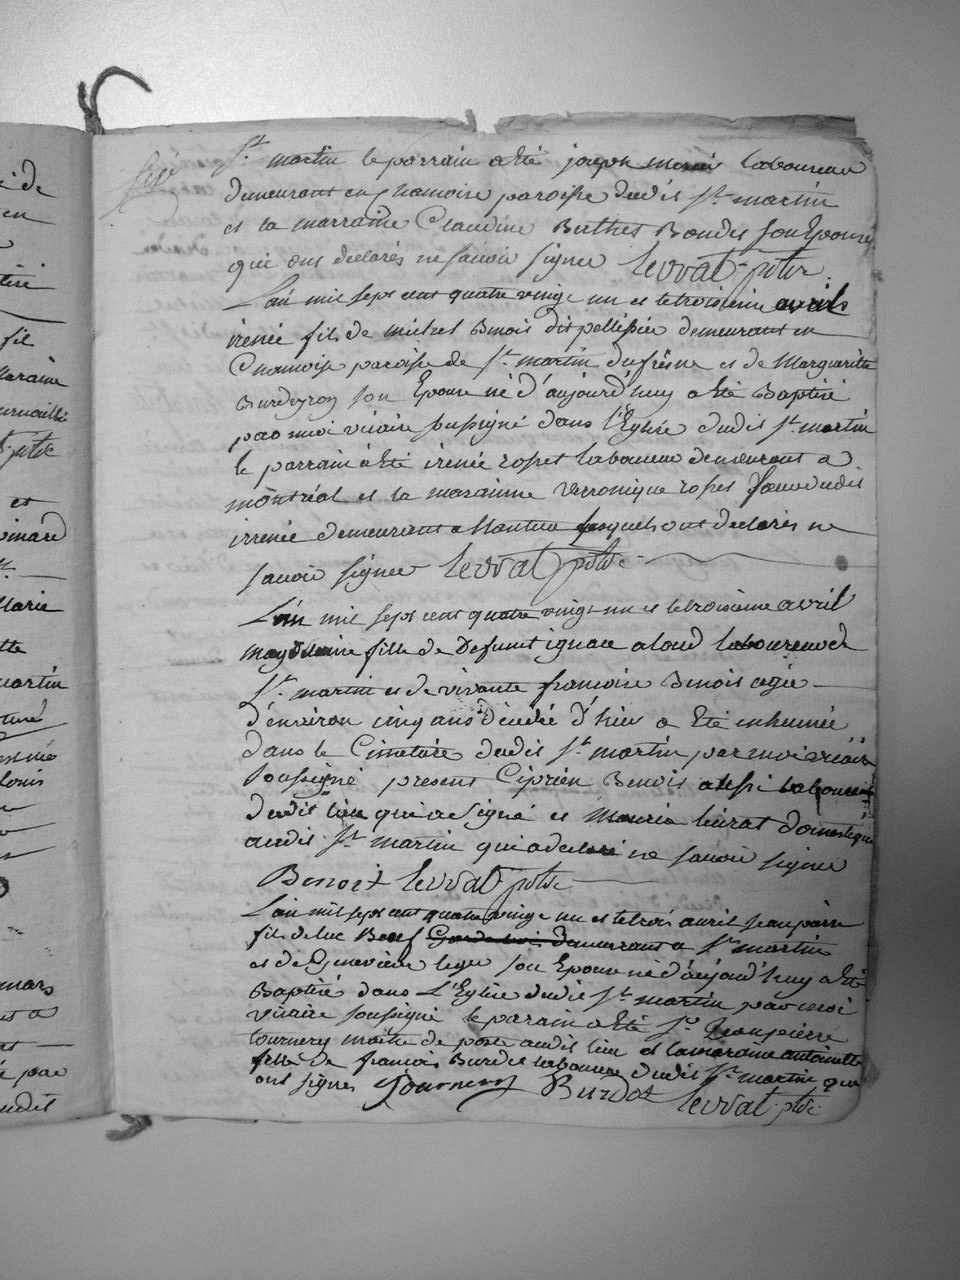 St. martin le parrain a Eté joseph laboureur
demeurant en Chamoise paroisse dudit St. martin
et la marraine Claudine Buthet Bondet son Epouse
qui ont declarés ne savoir signer levrat ptre
L'an mil sept cent quatre vingt un et le troisieme avril
irenée fils de michel Benoit dit pellissié demeurant en
Chamoise paroisse de St. martin du frêne et de Marguerite
Burdeyron son Epouse né d'aujourd'huy a Eté Baptisé
par moi vicaire soussigné dans l'Eglise dudit St. martin
le parrain a Eté irenée rosset laboureur demeurant a
montréal et la maraine veronique rosset sœur dudit
irrenée demeurant a Nantua lesquels ont declarés ne
savoir signer levrat ptre
L'an mil sept cent quatre vingt un et le troisieme avril
magdelaine fille de Defunt ignace aloud laboureur de
St. martin et de vivante francoise Benoit agée
d'environ cinq ans décedée d'hier a Eté inhumée
dans le Cimetiére dudit St. martin par moi vicaire
soussigné present Ciprien Benoit aussi laboureur
dudit lieu qui a signé et Maurice lieurat domestique
audit St. martin qui a declaré ne savoir signer
Benoit levrat ptre
L'an mil sept cent quatre vingt un et le trois avril jean pierre
fils de luc Beuf demeurant a St. martin
et de Genevieve leger son Epouse né d'aujourd'huy a Eté
Baptisé dans L'Eglise dudit St. martin par moi
vicaire soussigné le parain a Eté Sr. Jean pierre
tournery maitre de poste audit lieu et la maraine antoinette
fille de francois Burdet laboureur dudit St. martin qui
ont signés Tournery Burdet levrat ptre